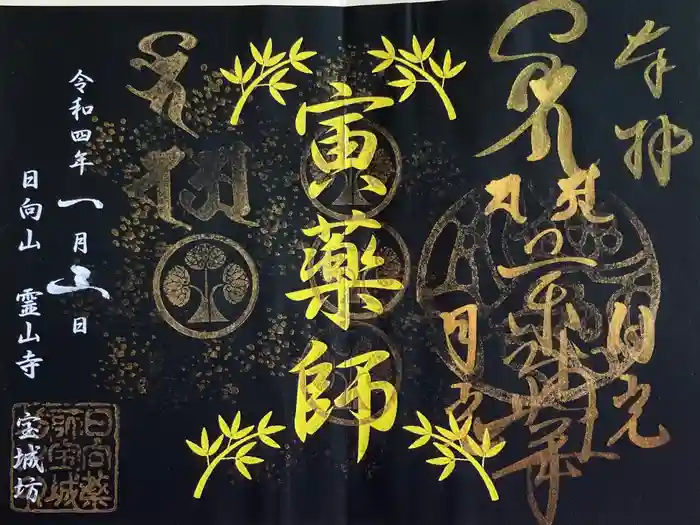 奉拝
日光
月光
寅薬師
令和四年一月三日
日向山 霊山寺 宝城坊
日向薬
師宝城